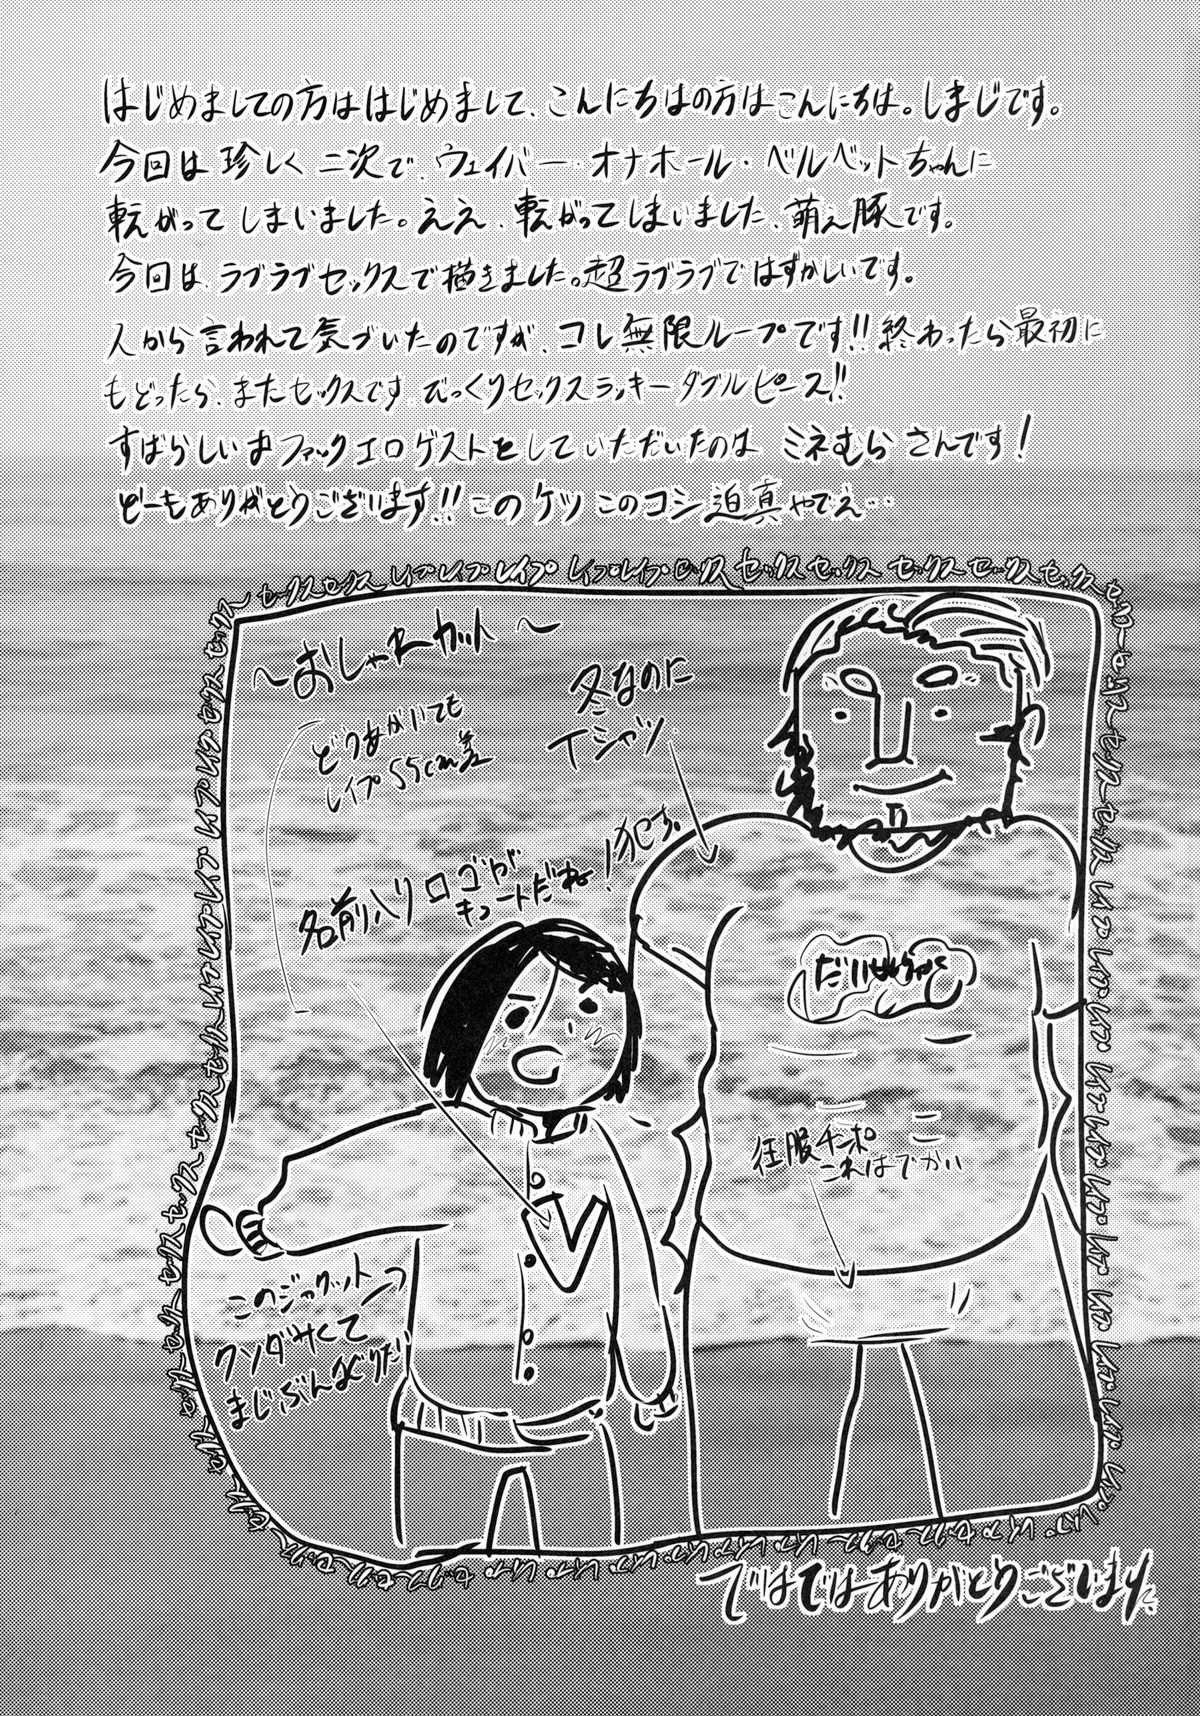 はじめましての方ははじめまして、こんにちはの方はこんにちは。しまじです。
今回は珍しく二次で、ウェイバー・オナホール・ベルベットちゃんに
転がってしまいました。ええ、転がってしまいました、萌え豚です。
今回は、ラブラブセックスで描きました。超ラブラブではずかしいです。
人から言われて気づいたのですが、コレ無限ループです!!終わったら最初に
もどったら、またセックスです。びっくりセックスラッキーダブルピース!!
すばらしいおファックエロゲストをしていただいたのは ミネむら さんです!
どーもありがとうございます!!このケツ このコシ迫真やでえ…
セックスセックス レイプレイプレイプ レイプレイプ セックス セックスセックス セックス セックス セックス
〜おしゃれカット〜
どうあがいても
レイプ55cm差
冬なのに
Tシャツ
名前入りロゴが
キュートだね!犯す。
征服チンポ
これはでかい
このジャケット
クソダサくて
まじぶんなぐりたい
ではではありがとうございます。